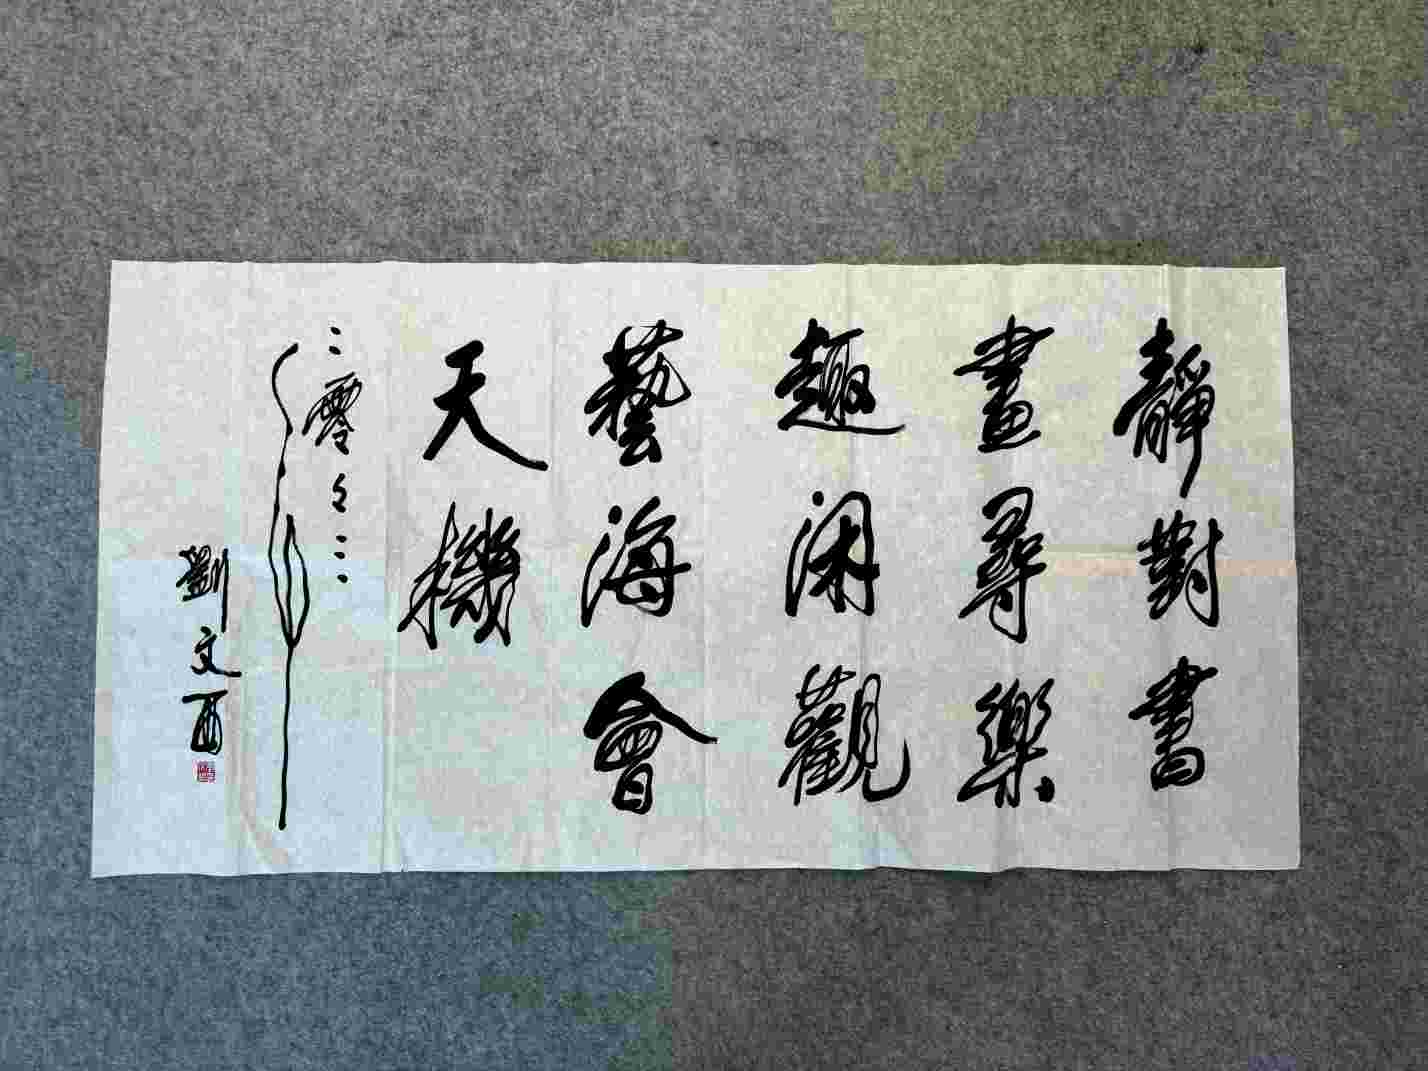 靜對書
畫尋樂
趣闲觀
藝海會
天機
二零々二年
劉文酉